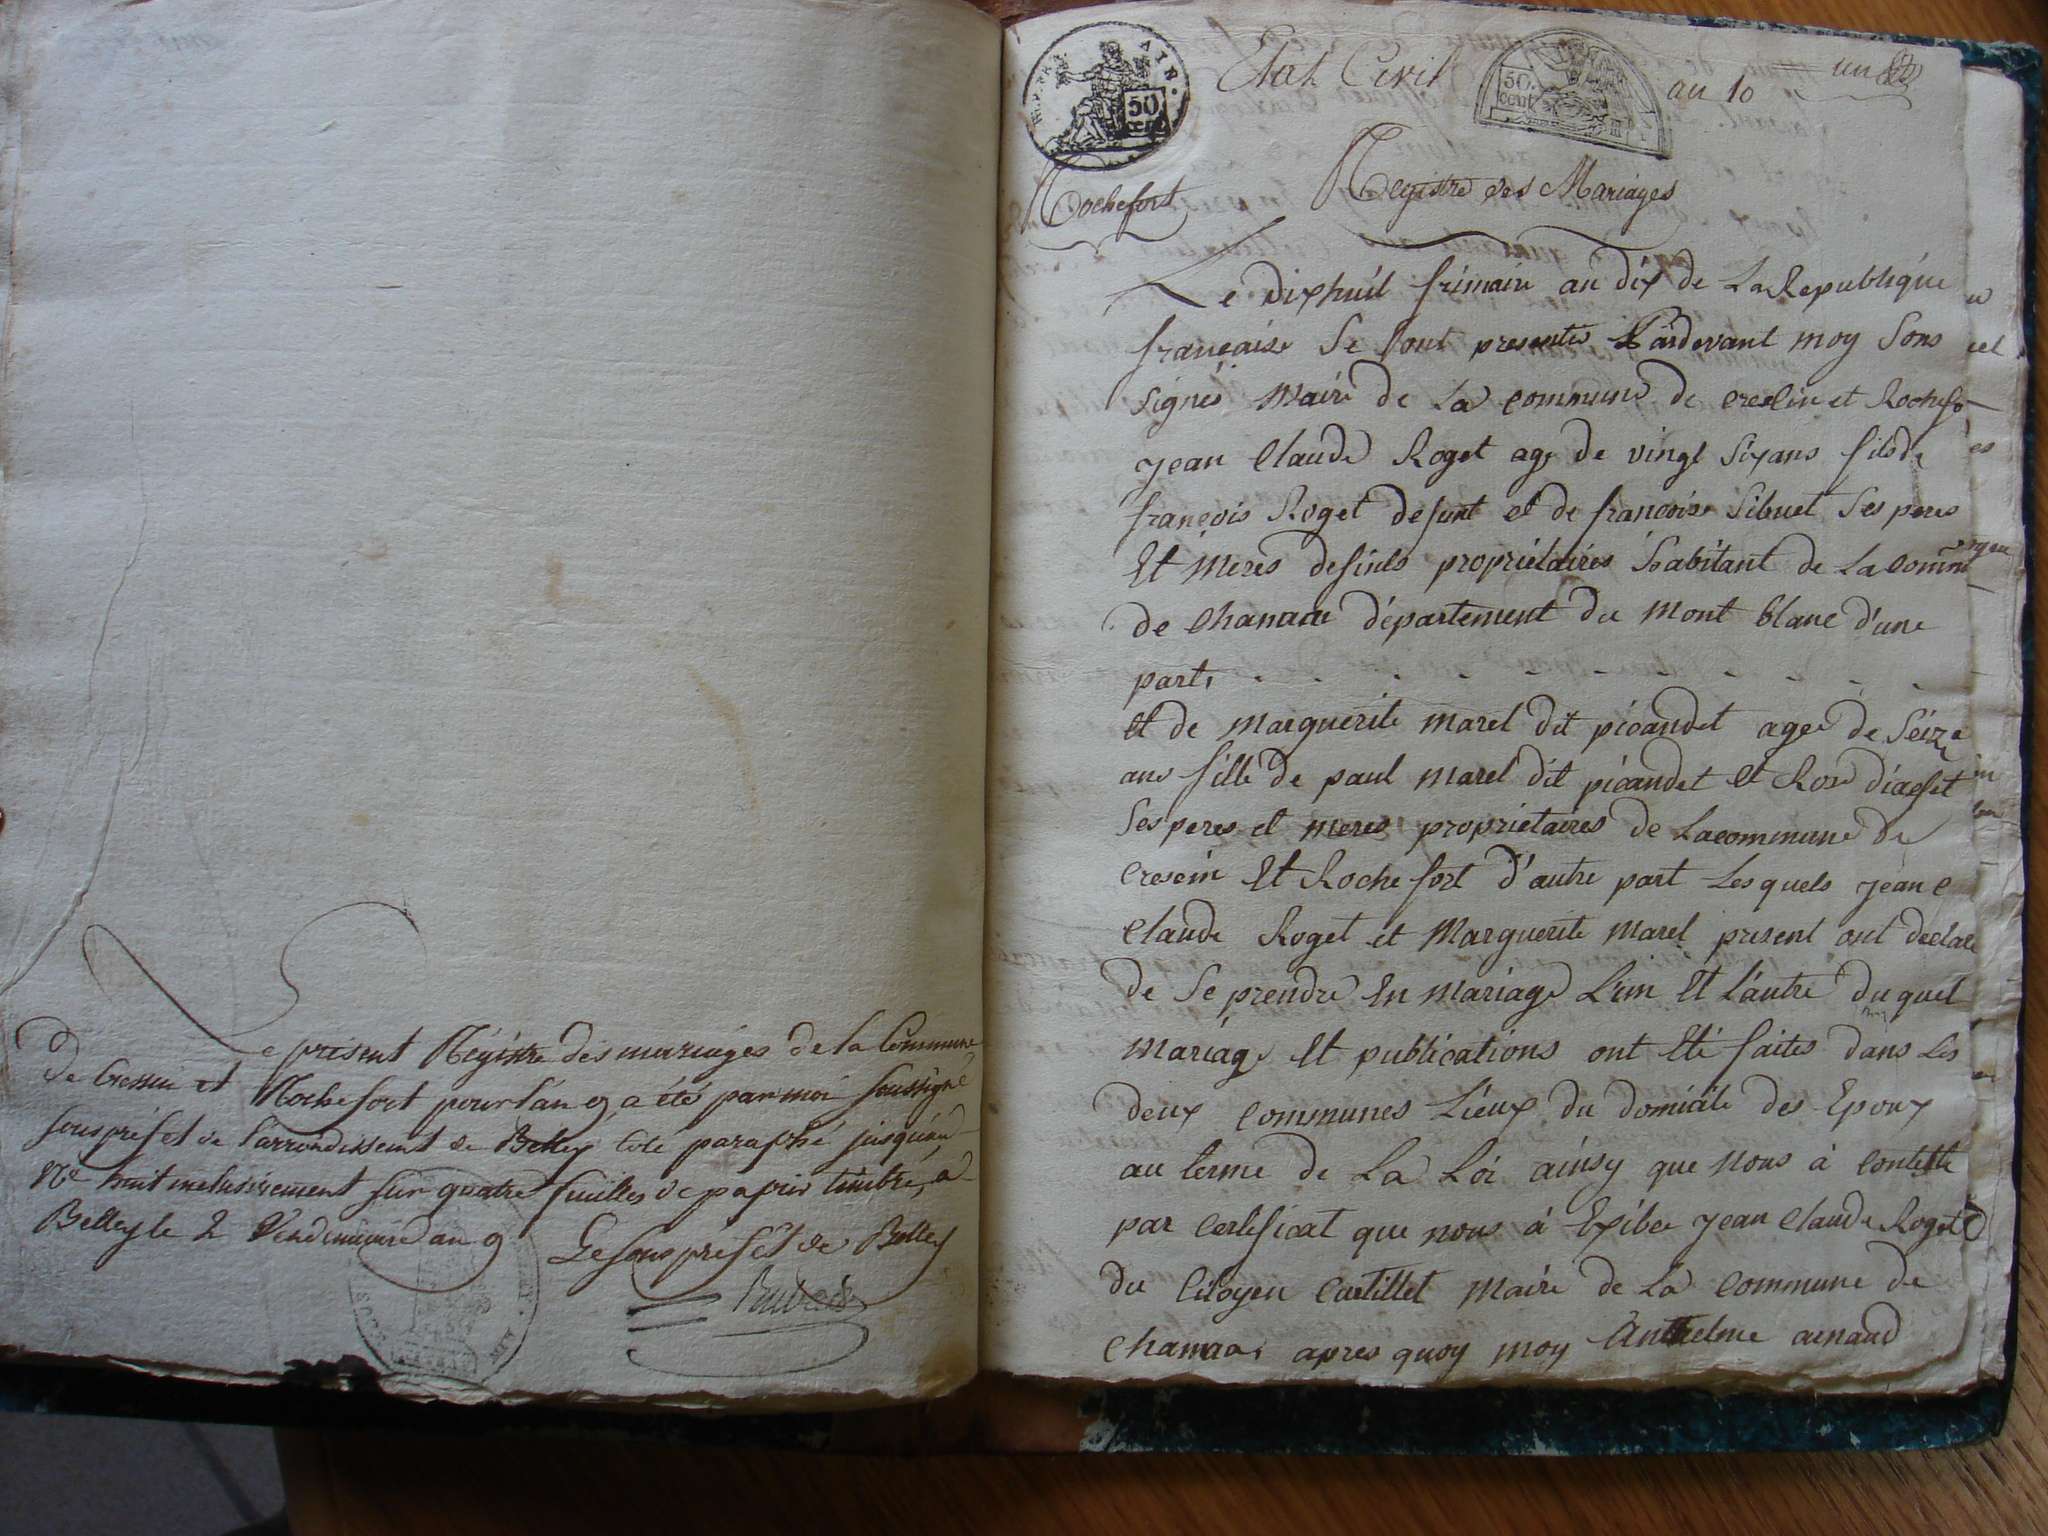 Le present Régistre des mariages de la Commune
de Cressin et Rochefort pour l'an 9 a été par moi soussigné
sous préfet de l'arrondissement de Belley coté paraphé jusqu'au
N.e huit inclusivement sur quatre feuilles de papier timbré, à
Belley le 2 Vendemiaire an 9 Le sous préfet de Belley
Etat Civil an 10 un
REP. FRA.
50
cent
50.
cent
Rochefort
Registre des Mariages
Le dixhuit frimaire an dix de La Republique
française Se sont presentés Pardevant moy Sous
signés Maire de La commune de cressin et Rochefo
jean Claude Roget age de vingt six ans fils de
françois Roget defunt et de francoise Sibuet Ses peres
Et Meres defints propriétaires habitant de La comm
de Chanaz département du Mont blanc d'une
part,
et de Marguerite Marel dit picandet agee de Séize
ans fille de paul Marel dit picandet et Rose
Ses peres et Meres propriétaires de La commune de
Cresein Et Rochefort d'autre part Les quels jean C
Claude Roget et Marguerite Marel present ont declare
de Se prendre En Mariage L'un Et L'autre du quel
Mariage Et publications ont Eté faites dans Les
deux communes Lieux du domicile des Epoux
au terme de La Loi ainsy que Nous à Conteste
par Certificat que nous à Exibee jean Claude Roget
du Citoyen Maire de La Commune de
Chanaz, apres quoy moy Anthelme arnaud